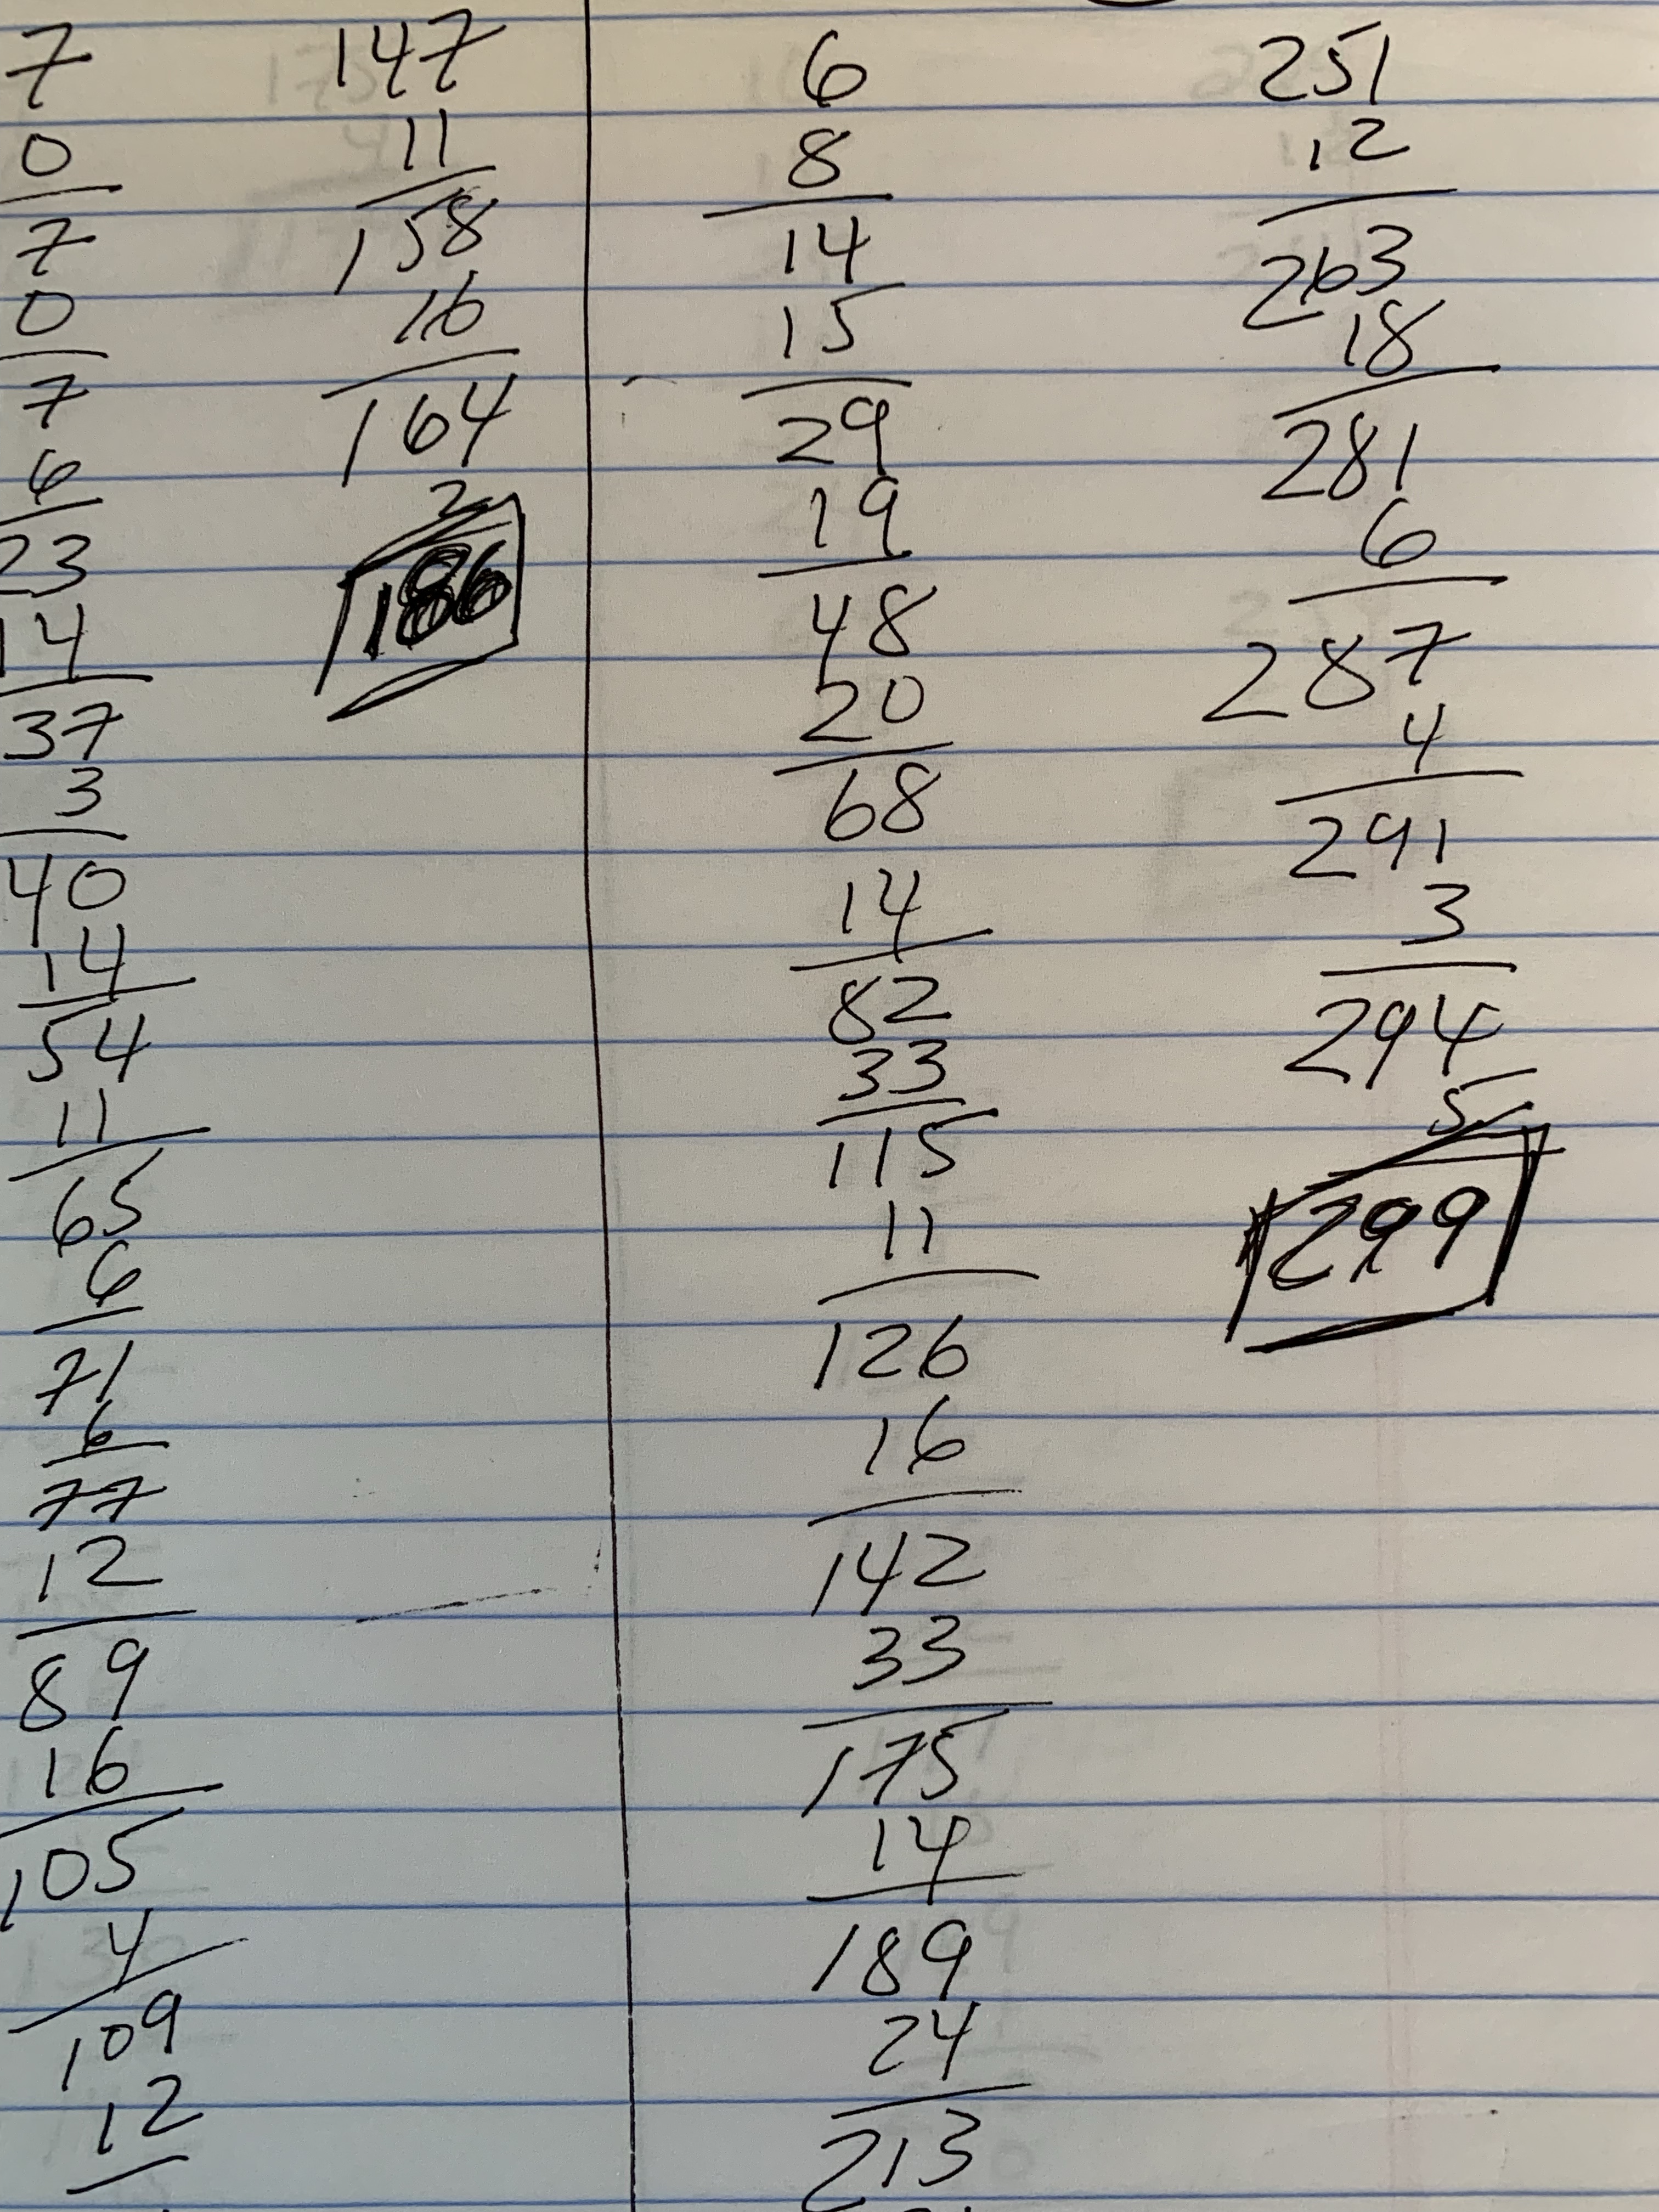 7
0
7
0
7
6
23
14
37
3
40
14
54
11
65
6
71
6
77
12
89
16
105
4
109
12
147
11
158
16
164
2
186
6
8
14
15
29
19
48
20
68
14
82
33
115
11
126
16
142
33
175
14
189
24
213
251
12
263
18
281
6
287
4
291
3
294
5
299